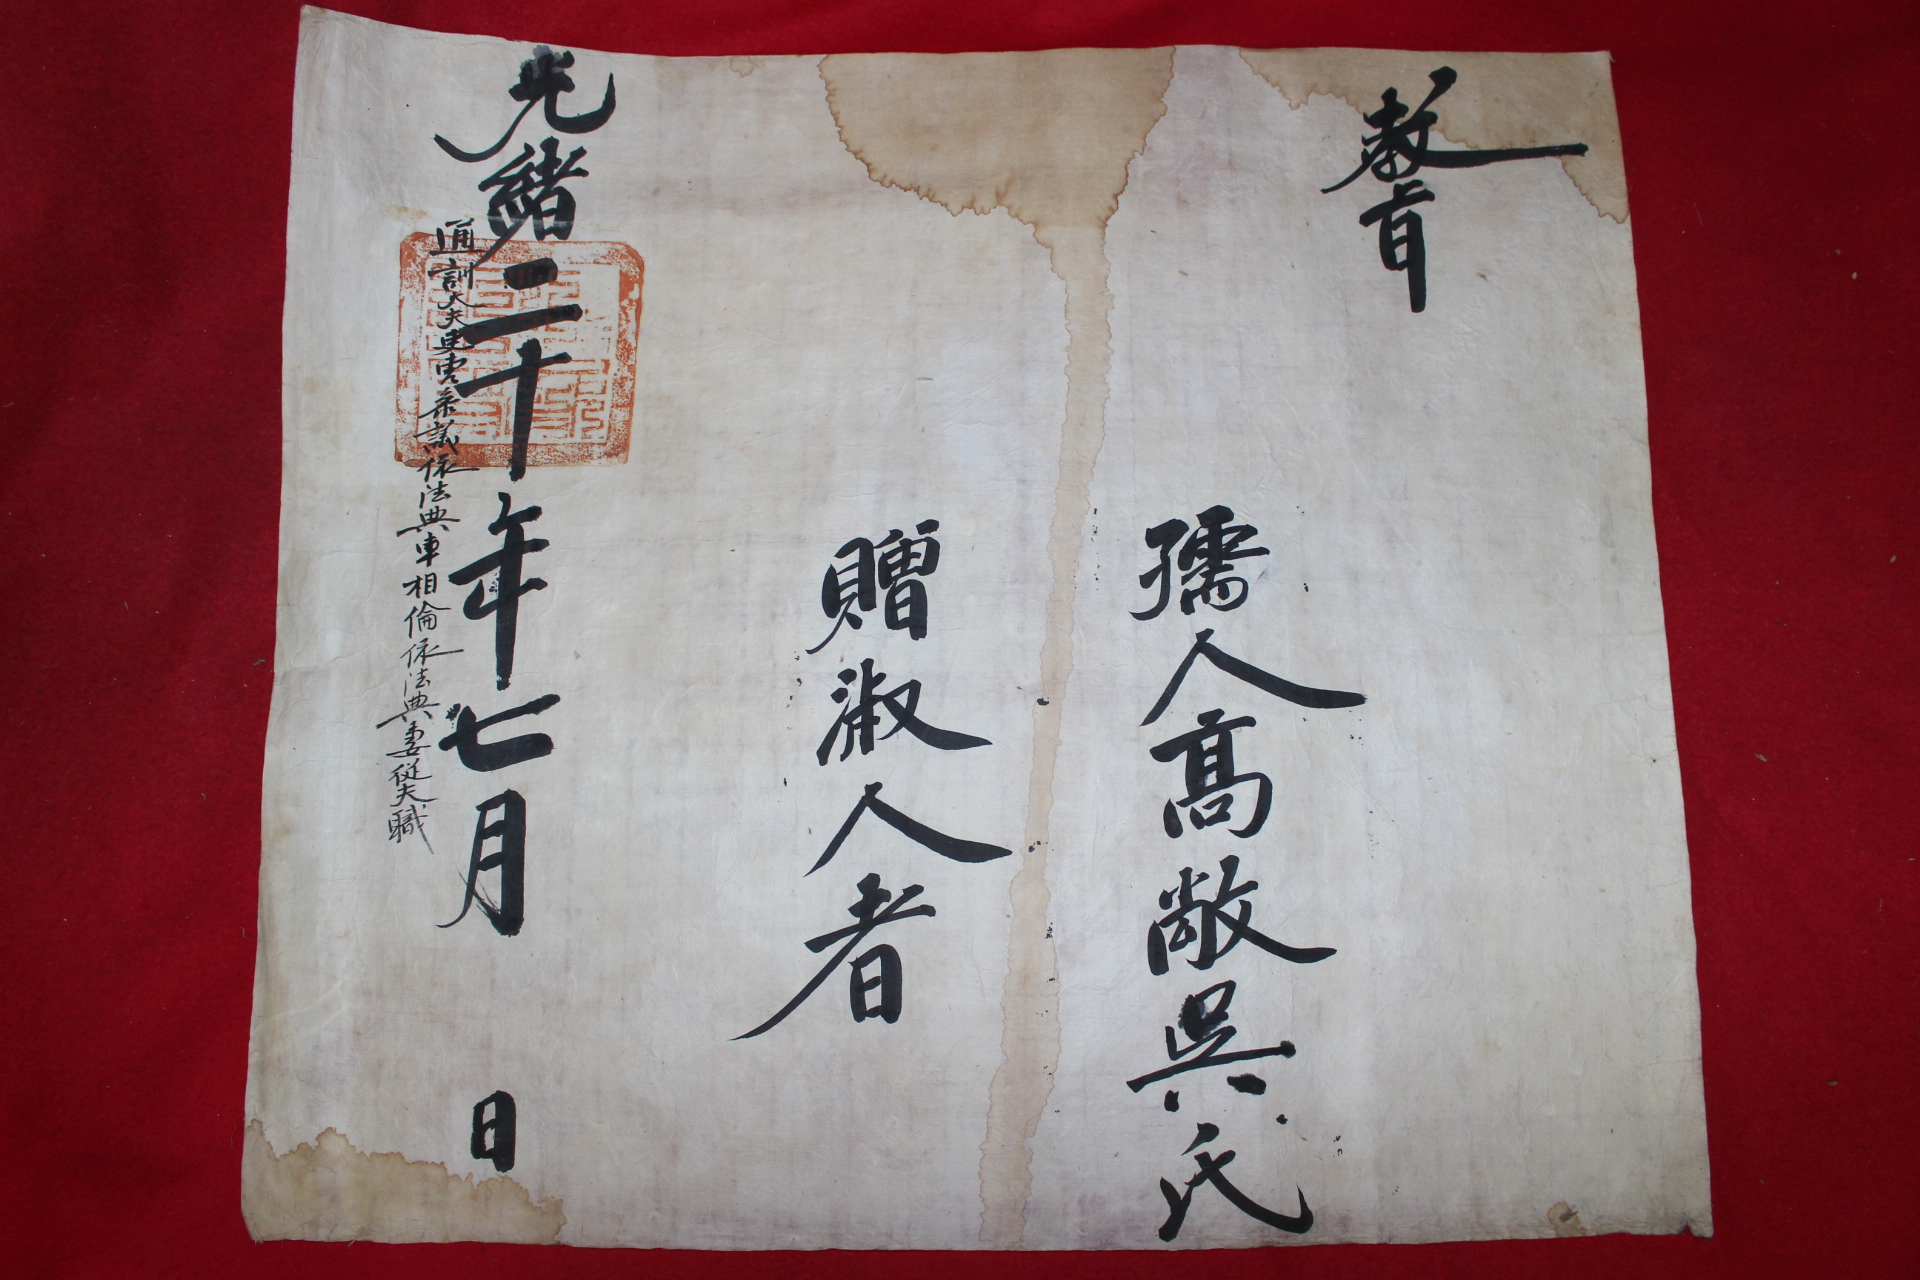 敎旨
孺人高敞吳氏
贈淑人者
光緒二十年七月 日
通訓大夫吏曹叅議依法典車相倫依法典妻從夫職